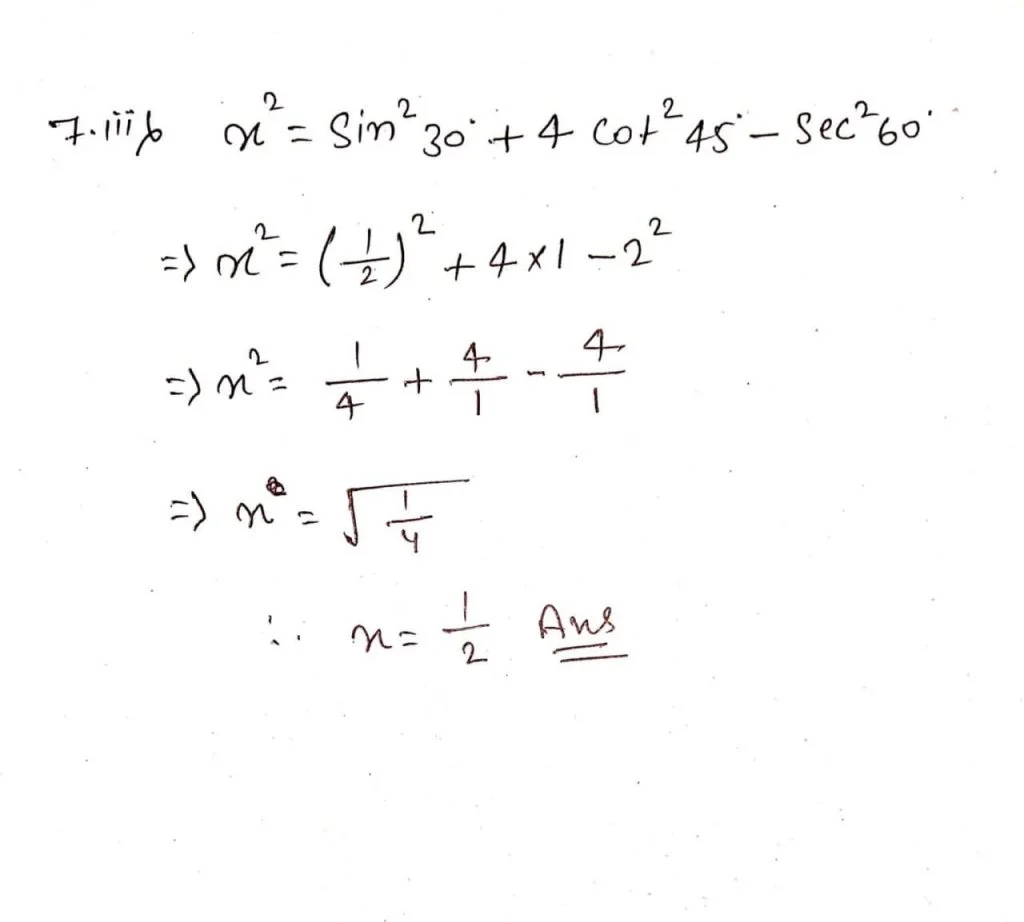 7.iii) x² = Sin²30° + 4 Cot²45° – Sec²60°
=> x² = (1/2)² + 4×1 – 2²
=> x² = 1/4 + 4/1 - 4/1
=> x = √(1/4)
∴ x = 1/2 Ans